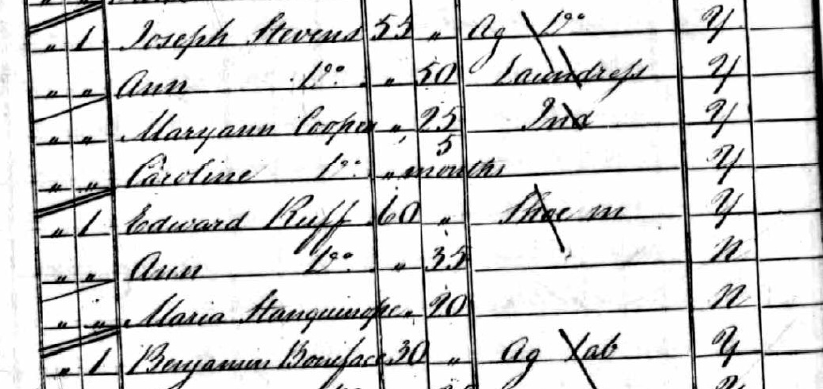 " 1 Joseph Stevens 55 " Ag Do Y
" " Ann Do " 50 Laundress Y
" " Maryann Cooper " 25 Ind Y
" " Caroline Do " 5 months Y
" 1 Edward Ruff 60 " Shoe m Y
" " Ann Do " 35 N
" " Maria " 20 N
" 1 Benjamin Boniface 30 " Ag Lab Y